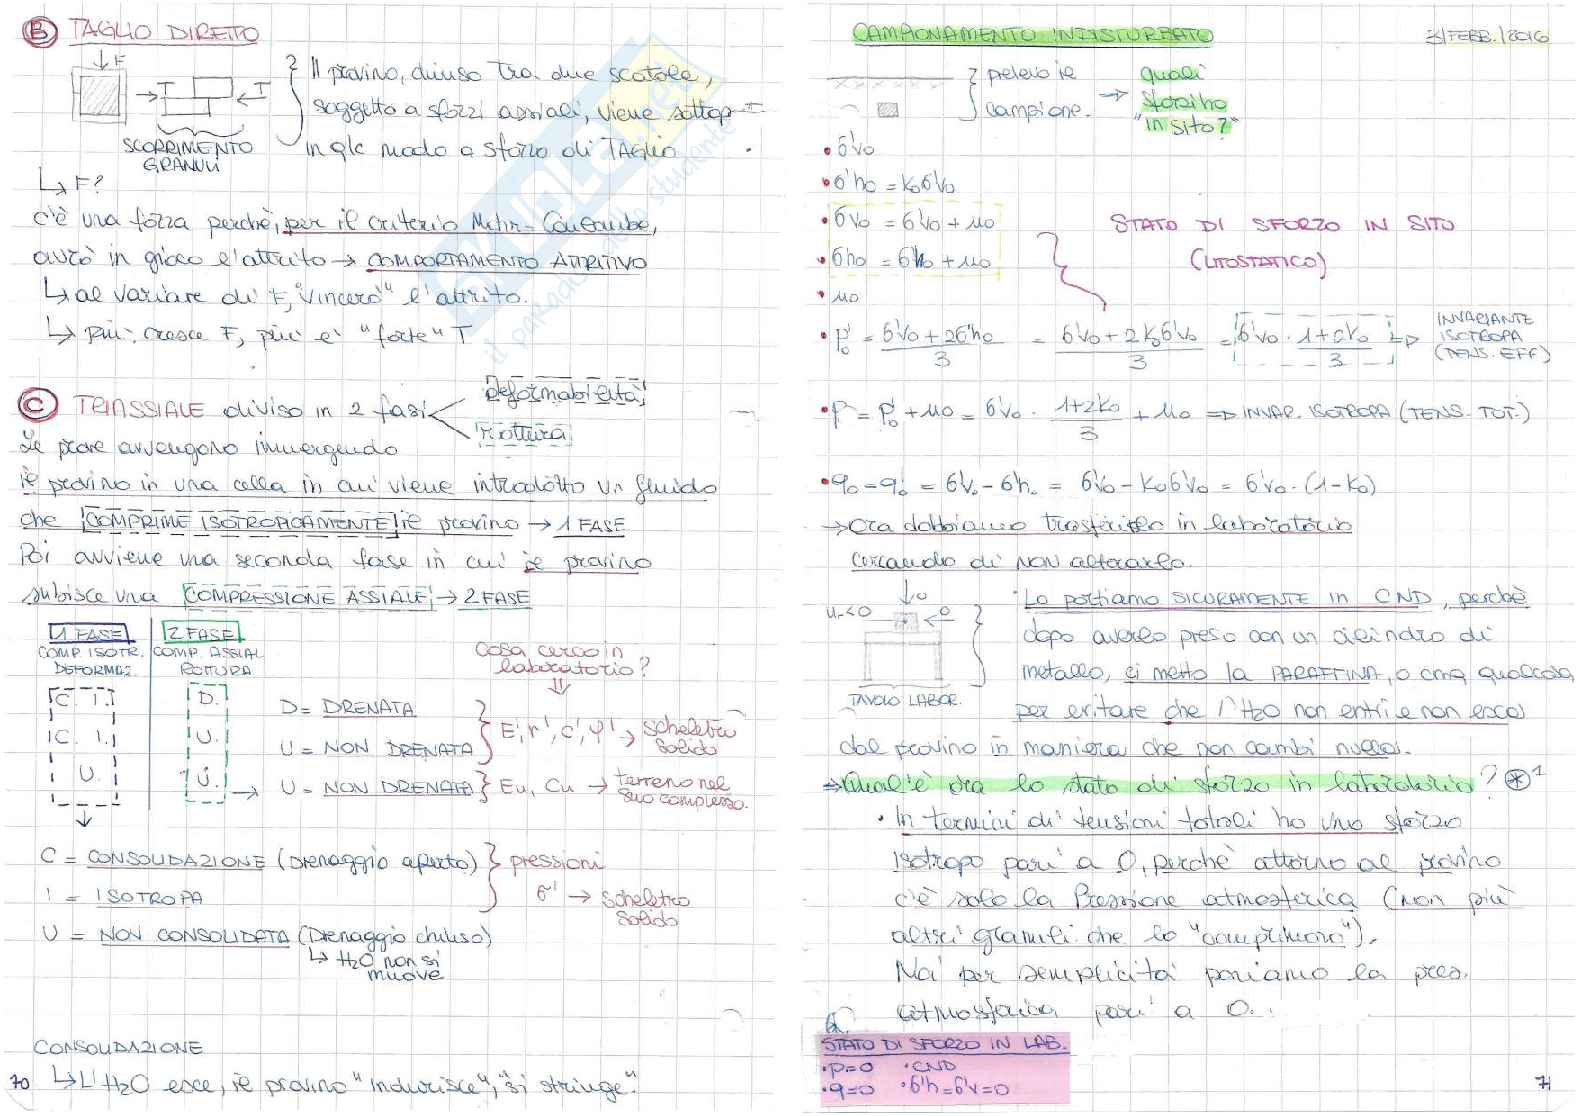 B TAGLIO DIRETTO
F
T T
SCORRIMENTO
GRANULI
Il provino, chiuso tra due scatole,
soggetto a sforzi assiali, viene sottop
in qlc modo a sforzo di TAGLIO
↳ F?
c'è una forza perchè, per il criterio Mohr-Coulomb,
avrò in gioco l'attrito → COMPORTAMENTO ATTRITIVO
↳ al variare di F, "vincerò" l'attrito.
↳ più cresce F, più è "forte" T
C TRIASSIALE diviso in 2 fasi
Deformabilità
Rottura
Le prove avvengono immergendo
il provino in una cella in cui viene introdotto un fluido
che COMPRIME ISOTROPICAMENTE il provino → 1 FASE
Poi avviene una seconda fase in cui il provino
subisce una COMPRESSIONE ASSIALE → 2 FASE
1 FASE 2 FASE
COMP. ISOTR. COMP. ASSIAL
DEFORMAZ. ROTTURA
C. I. D.
C. I. U.
U. U.
Cosa cerco in
laboratorio?
D = DRENATA
U = NON DRENATA
E', ν', c', φ' → scheletro
solido
→ U = NON DRENATA } Eu, Cu → terreno nel
suo complesso.
C = CONSOLIDAZIONE (Drenaggio aperto)
I = ISOTROPA
pressioni
σ' → scheletro
solido
U = NON CONSOLIDATA (Drenaggio chiuso)
↳ H2O non si
muove
CONSOLIDAZIONE
↳ L'H2O esce, il provino "indurisce", "si stringe"
70
CAMPIONAMENTO INDISTURBATO
FEBB./2016
prelevo il
campione. →
quali
sforzi ho
"in sito?"
• σ'vo
• σ'ho = Koσ'vo
• σvo = σ'vo + uo
• σho = σ'ho + uo
• uo
STATO DI SFORZO IN SITO
(LITOSTATICO)
• p'o = σ'vo + 2σ'ho / 3 = σ'vo + 2Koσ'vo / 3 = σ'vo · 1+2Ko / 3
INVARIANTE
ISOTROPA
(TENS. EFF)
• p = p'o + uo = σ'vo · 1+2Ko / 3 + uo ⇒ INVAR. ISOTROPA (TENS. TOT.)
• qo = q'o = σ'vo - σ'ho = σ'vo - Koσ'vo = σ'vo · (1-Ko)
→ Ora dobbiamo trasferirlo in laboratorio
cercando di NON alterarlo.
ur<0
0
0
TAVOLO LABOR.
• Lo portiamo SICURAMENTE in CND, perchè
dopo averlo preso con un cilindro di
metallo, ci metto la PARAFFINA, o cmq qualcosa
per evitare che l'H2O non entri e non esca
dal provino in maniera che non cambi nulla.
⇒ Qual'è ora lo stato di sforzo in laboratorio? * 1
• In termini di tensioni totali ho uno sforzo
isotropo pari a 0, perchè attorno al provino
c'è solo la Pressione atmosferica (non più
altri granuli che lo "comprimono").
Noi per semplicità poniamo la pres.
atmosferica pari a 0.
STATO DI SFORZO IN LAB.
• p=0 • CND
• q=0 • σ'h=σ'v=0
71